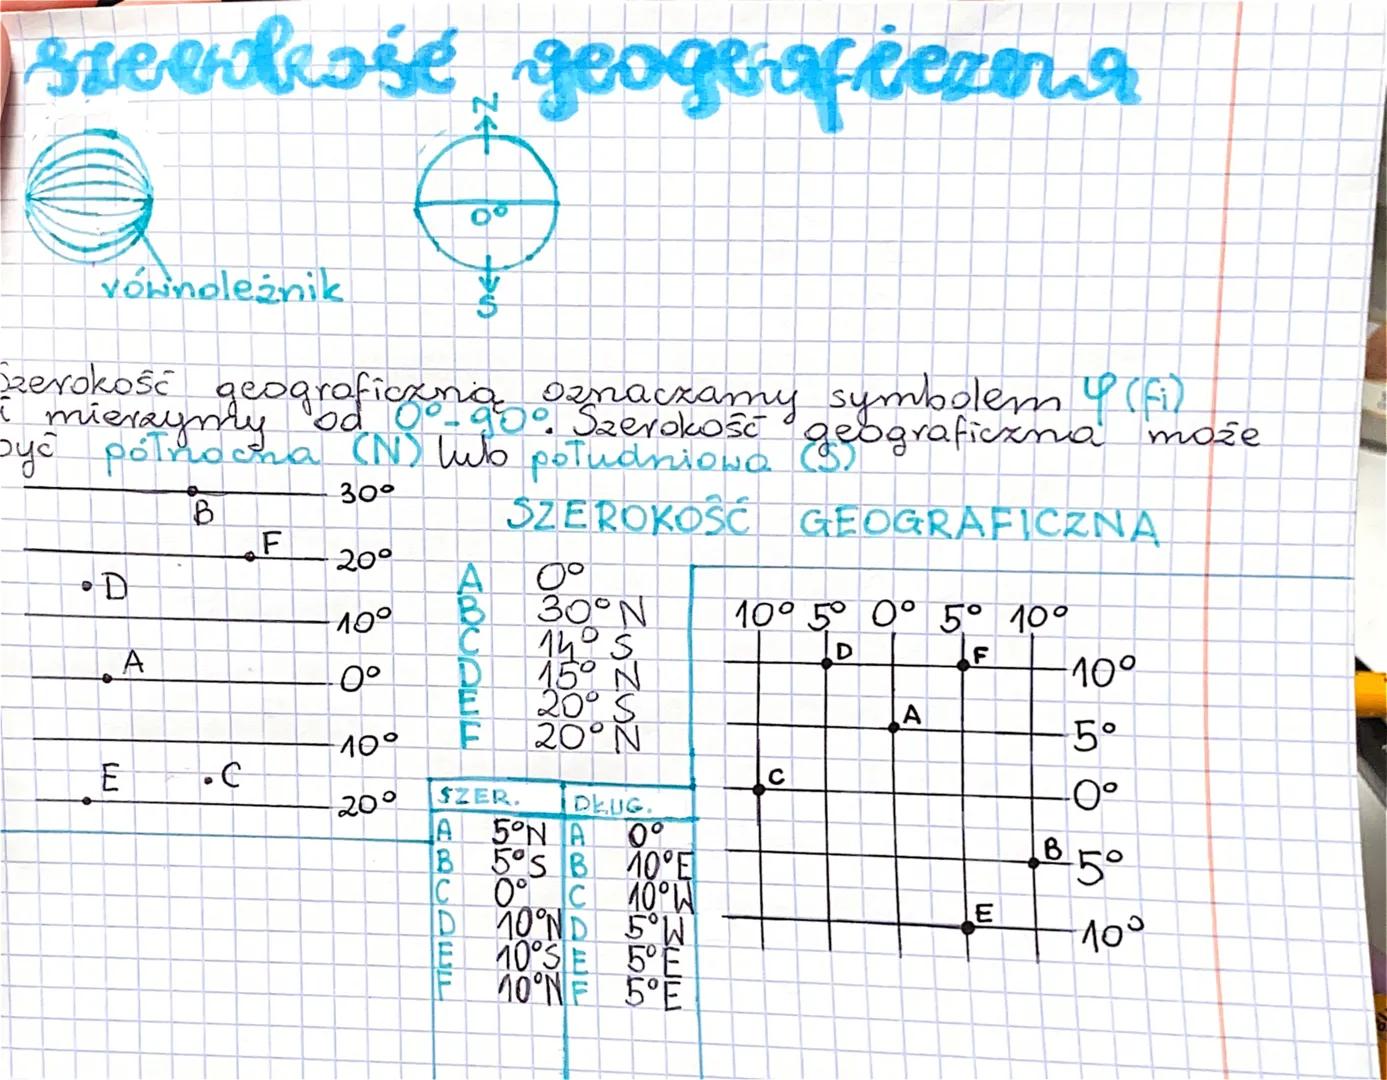 szerokość geograficzna
N
0°
S
równoleżnik
Szerokość geograficzną oznaczamy symbolem φ (fi)
i mierzymy od 0°-90°. Szerokość geograficzna może
być północna (N) lub południowa (S)
30°
B
F
20°
D
10°
A
0°
10°
E
C
20°
SZEROKOŚĆ GEOGRAFICZNA
A 0°
B 30° N
C 14° S
D 15° N
E 20° S
F 20° N
SZER. DŁUG.
A 5°N A 0°
B 5°S B 10°E
C 0° C 10°W
D 10°N D 5°W
E 10°S E 5°E
F 10°N F 5°E
10° 5° 0° 5° 10°
D F 10°
A 5°
C 0°
B 5°
E 10°